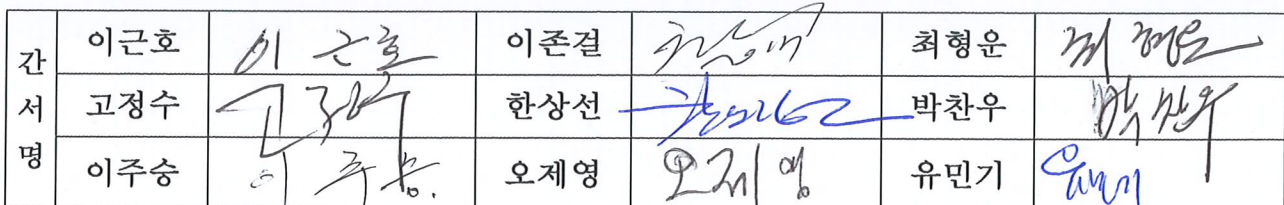 간 이근호 이 근호 이존결 최형운 최형운
서 고정수 고정수 한상선 박찬우 박찬우
명 이주승 이주승. 오제영 오제영 유민기 유민기